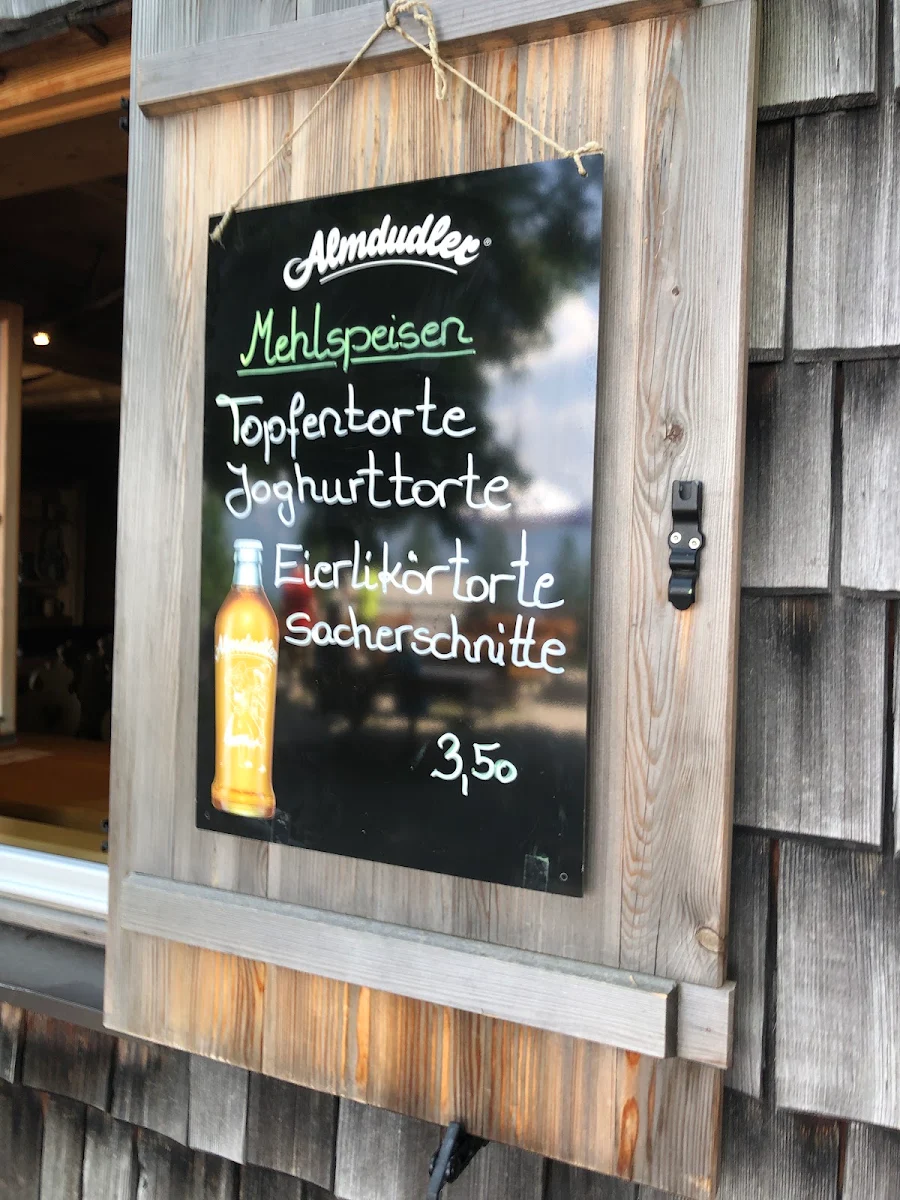 Almdudler®
Mehlspeisen
Topfentorte
Joghurttorte
Eierlikörtorte
Sacherschnitte
Almdudler
3,50